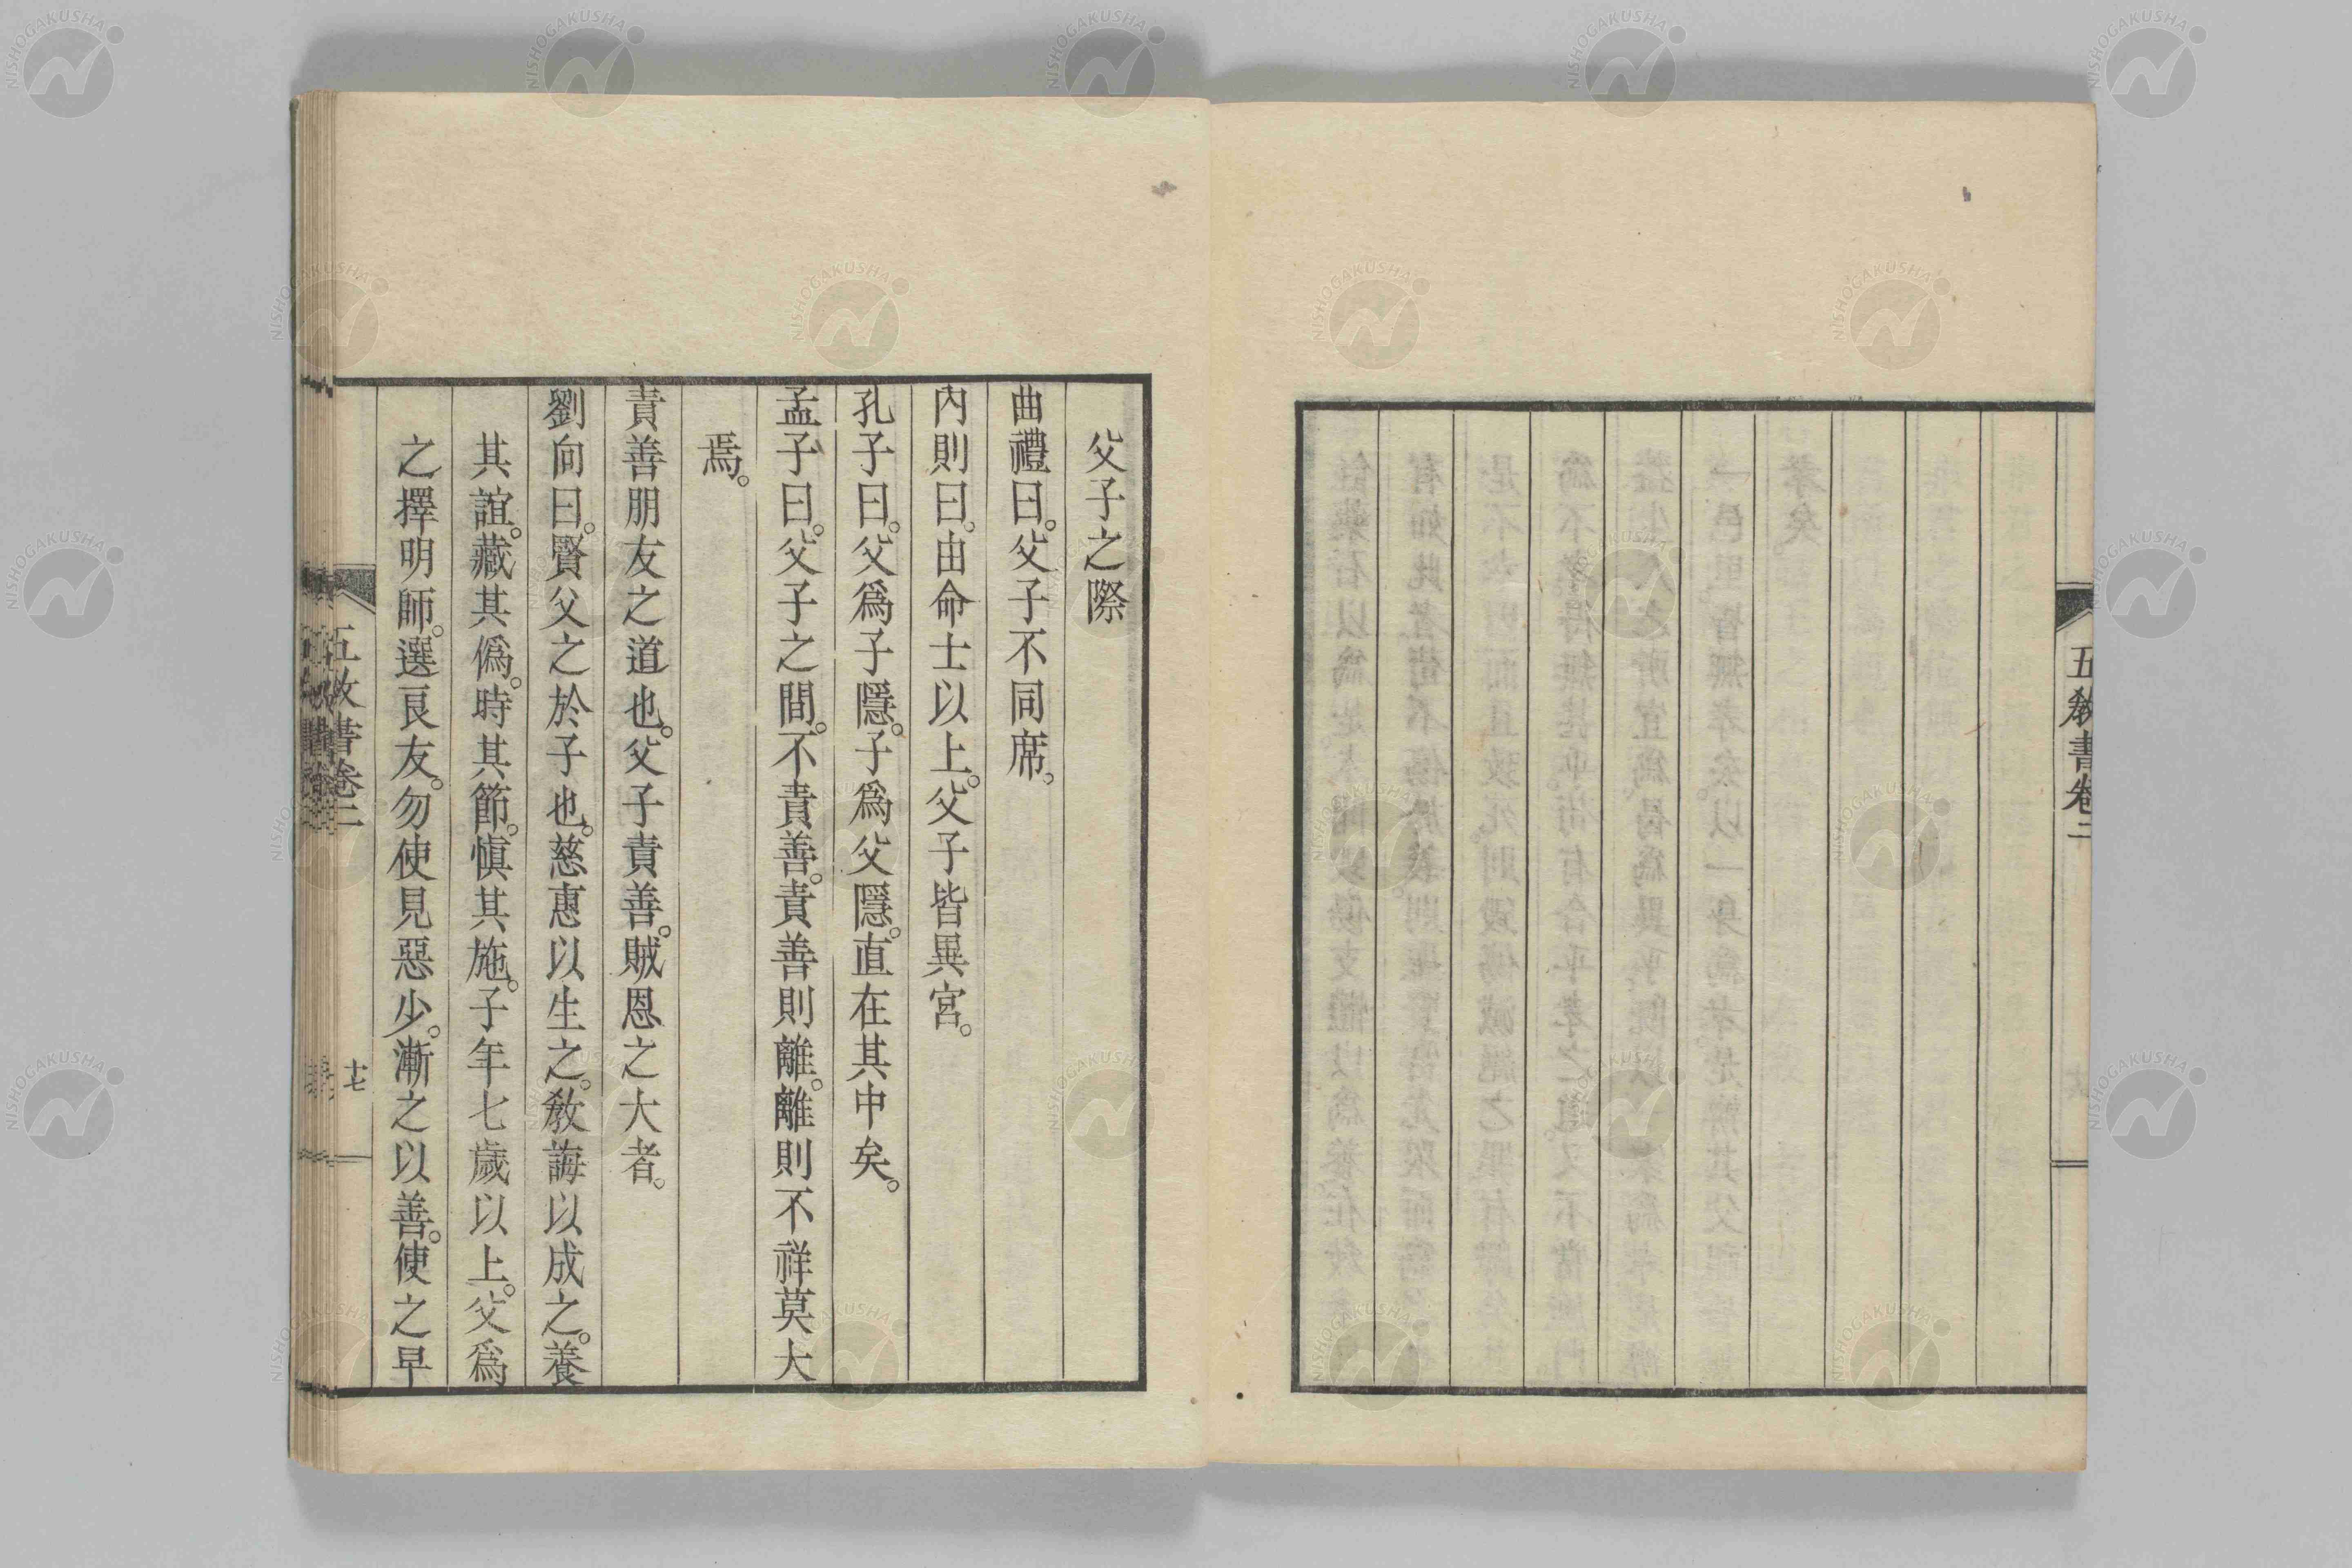 五教書卷二
父子之際
曲禮曰。父子不同席。
內則曰。由命士以上。父子皆異宮。
孔子曰。父爲子隱。子爲父隱。直在其中矣。
孟子曰。父子之間。不責善。責善則離。離則不祥莫大
焉。
責善朋友之道也。父子責善。賊恩之大者。
劉向曰。賢父之於子也。慈惠以生之。敎誨以成之。養
其誼。藏其僞。時其節。愼其施。子年七歲以上。父爲
之擇明師。選良友。勿使見惡少。漸之以善。使之早
五教書卷二
十七
NISHOGAKUSHA